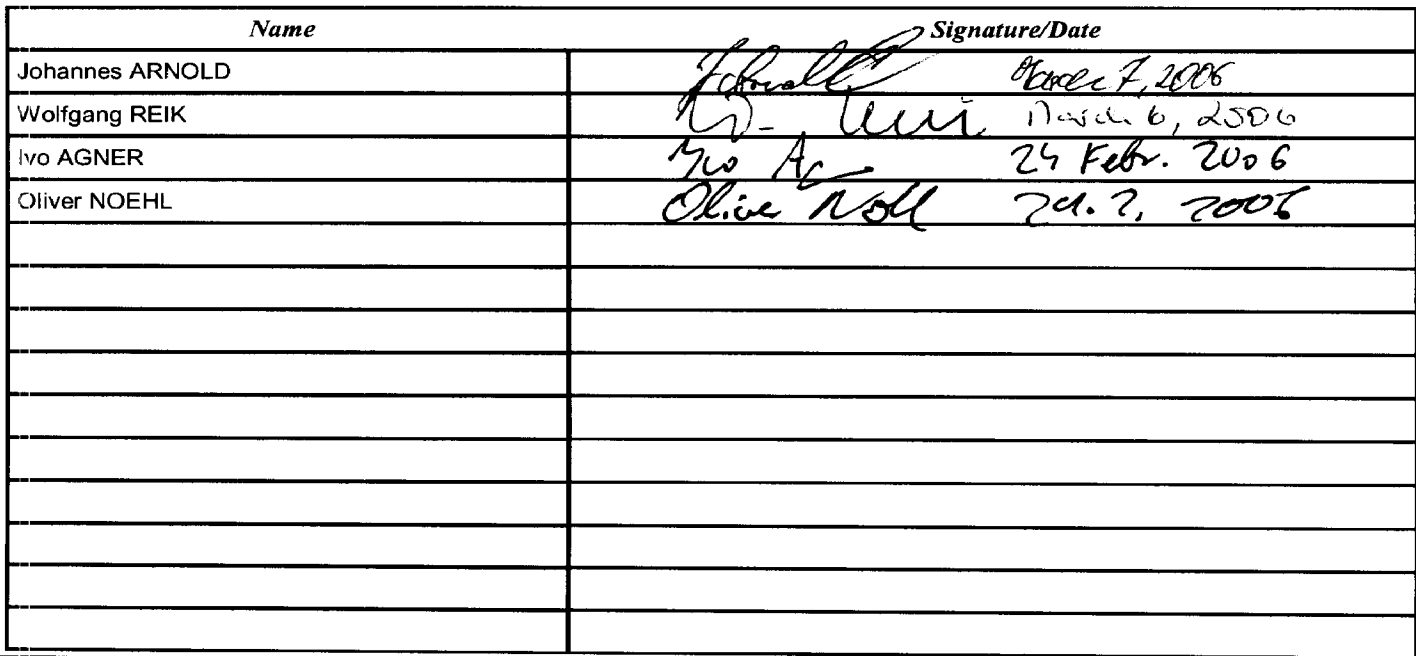 Name Signature/Date
Johannes ARNOLD JArnold March 7, 2006
Wolfgang REIK W. March 6, 2006
Ivo AGNER Ivo Ag 24 Febr. 2006
Oliver NOEHL Oliver Nöhl 2006